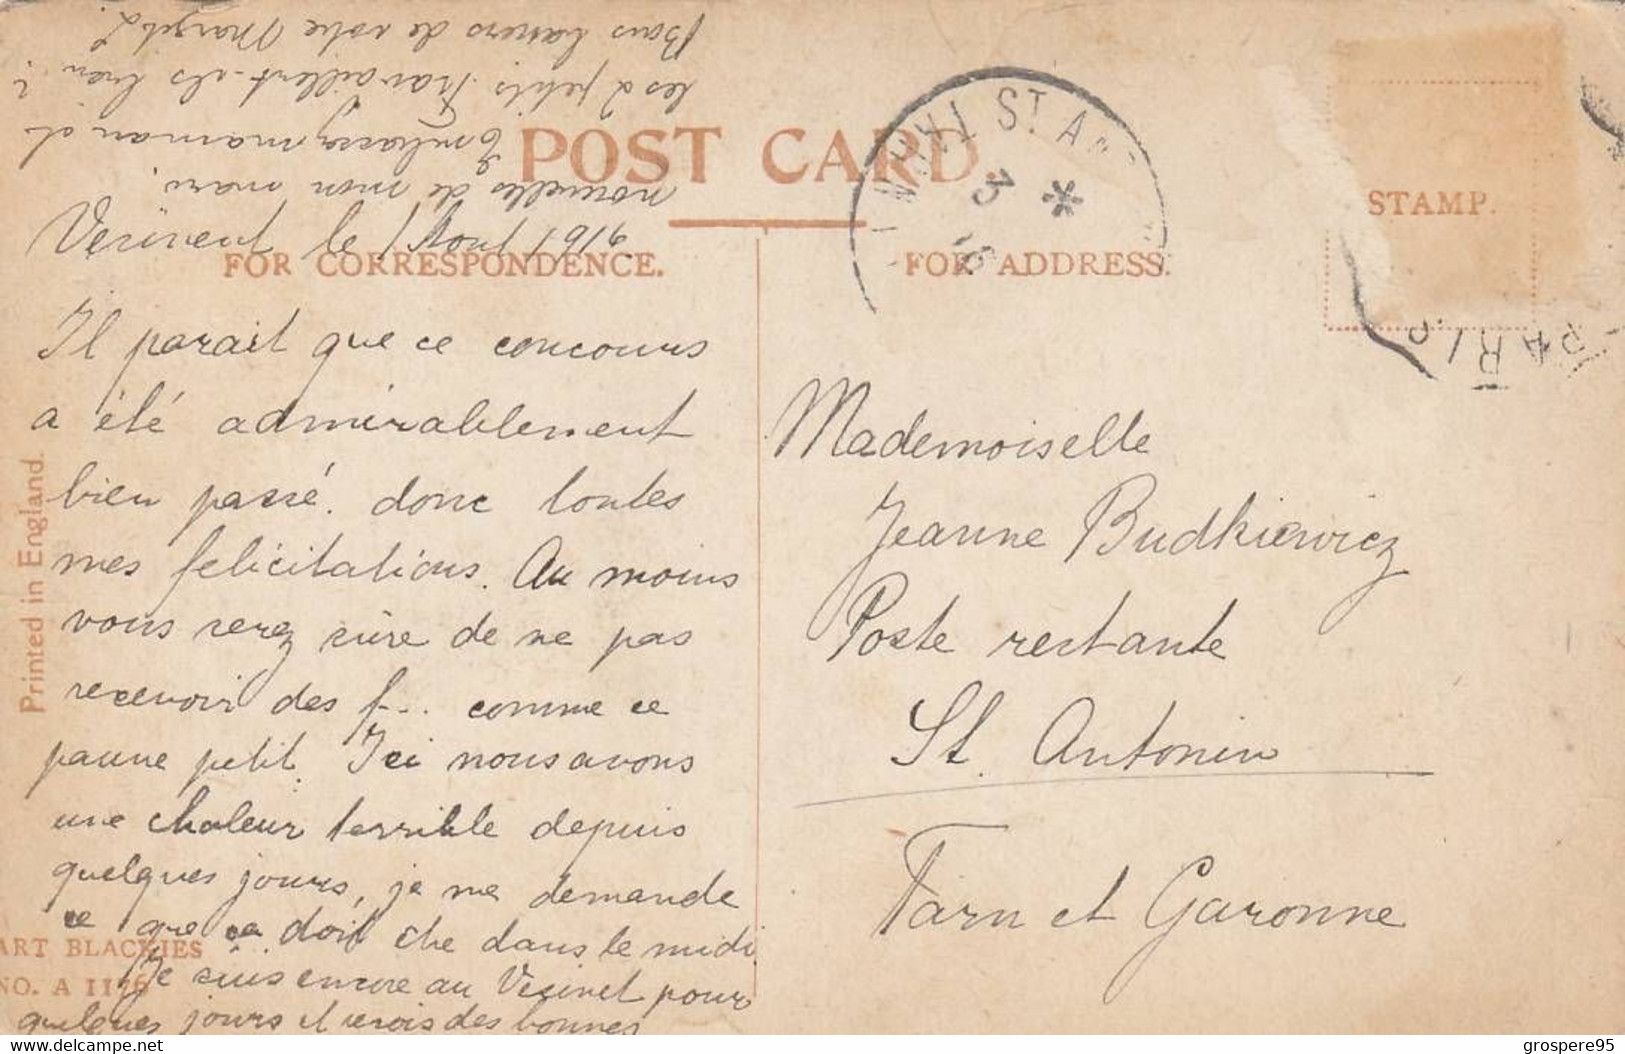 POST CARD.
FOR CORRESPONDENCE.
FOR ADDRESS.
STAMP.
Printed in England.
ART BLACKIES
NO. A 1176
ST. A
3
*
16
PARIS
Vésinet le 1 Aout 1916
Il parait que ce concours
a été admirablement
bien passé. donc toutes
mes felicitations. Au moins
vous serez sûre de ne pas
recevoir des f... comme ce
pauvre petit. Ici nous avons
une chaleur terrible depuis
quelques jours, je me demande
ce que ça doit être dans le midi
Je suis encore au Vésinet pour
quelques jours et reçois des bonnes
nouvelles de mon mari.
Embassez maman et
les 2 petits travaillent-ils bien?
Bons baisers de votre Margot
Mademoiselle
Jeanne Budkiewicz
Poste restante
St. Antonin
Tarn et Garonne
delcampe.net
grospere95